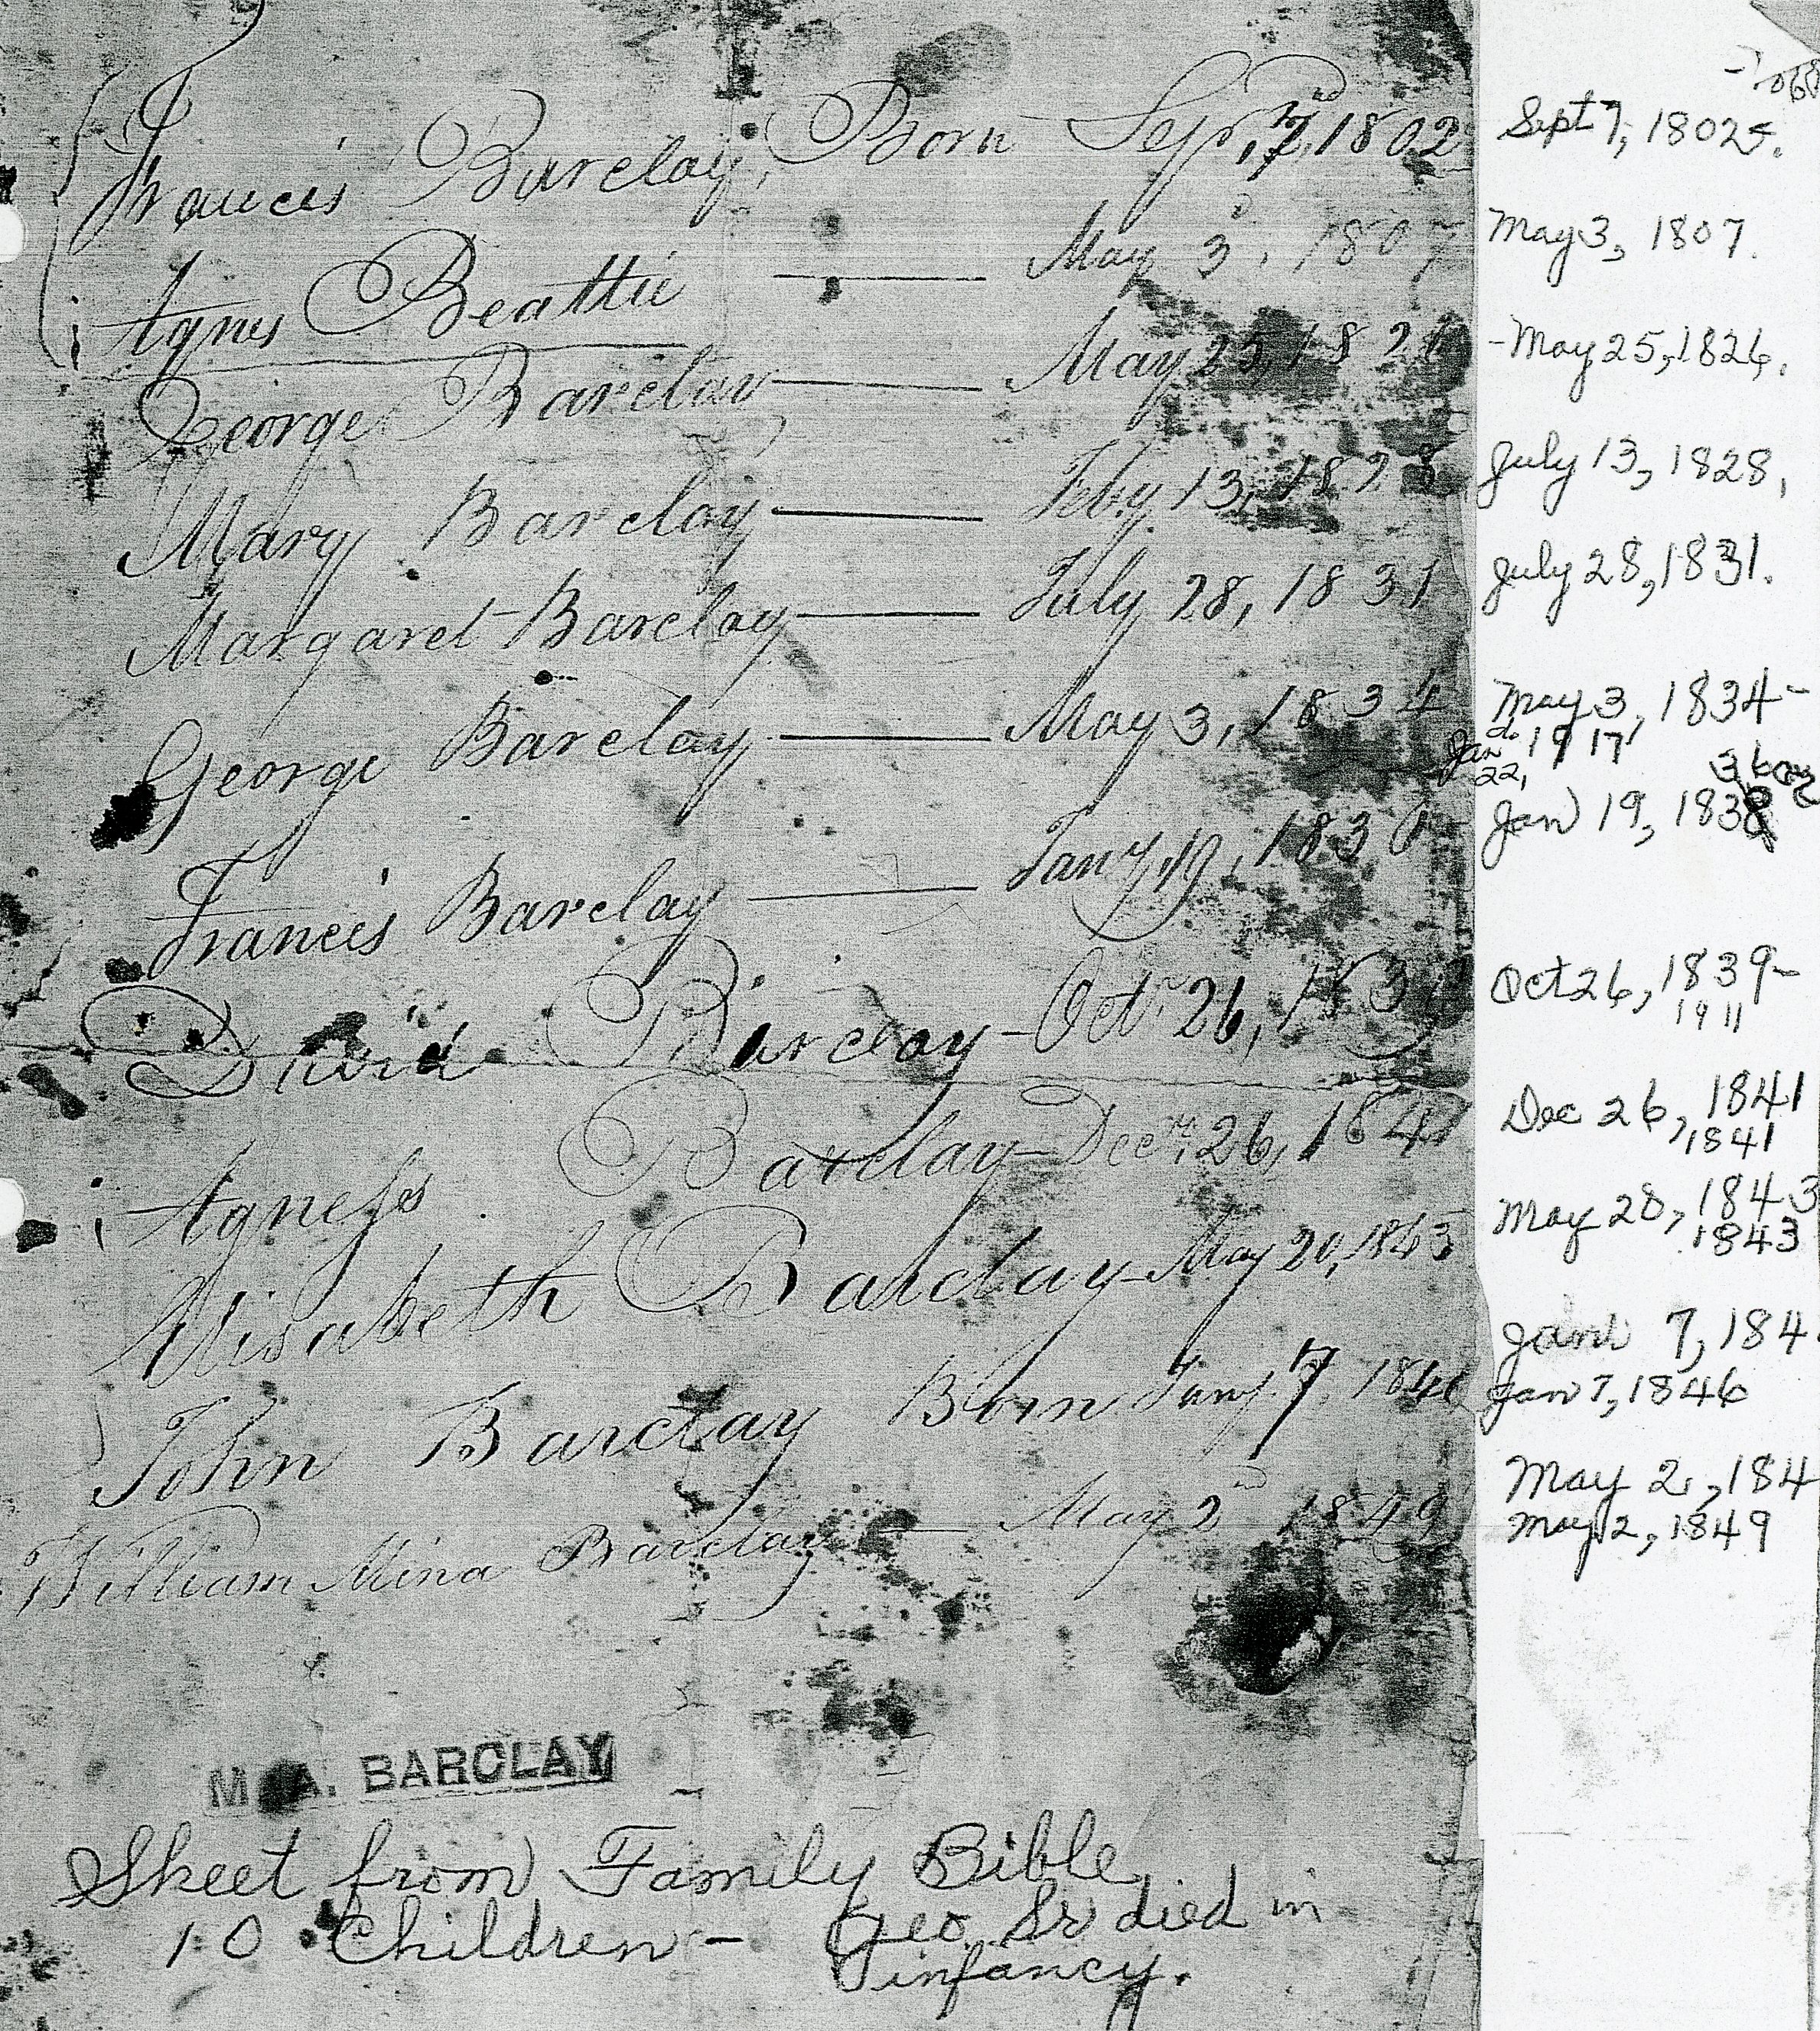 Francis Barclay, Born Sepr, 7, 1802 Sept 7, 1802.
Agnes Beattie — May 3d, 1807 May 3, 1807.
George Barclay — May 25, 1826 - May 25, 1826.
Mary Barclay — Feby 13, 1828 July 13, 1828,
Margaret Barclay — July 28, 1831 July 28, 1831.
George Barclay — May 3, 1834 May 3, 1834-
Jan 22, 1917
Francis Barclay — Jany 19, 183 Jan 19, 183
David Barclay - Octr 26, 183 Oct 26, 1839-
1911
Agness Barclay - Decr. 26, 1841 Dec 26, 1841
1841
Elisabeth Barclay - May 20, 1843 May 20, 1843
1843
John Barclay Born Jany. 7, 1846 7, 184
Jan 7, 1846
William Mina Barclay — May 2nd 1849 May 2, 184
May 2, 1849
M A. BARCLAY
Sheet from Family Bible
10 Children - Geo. Sr died in
infancy.